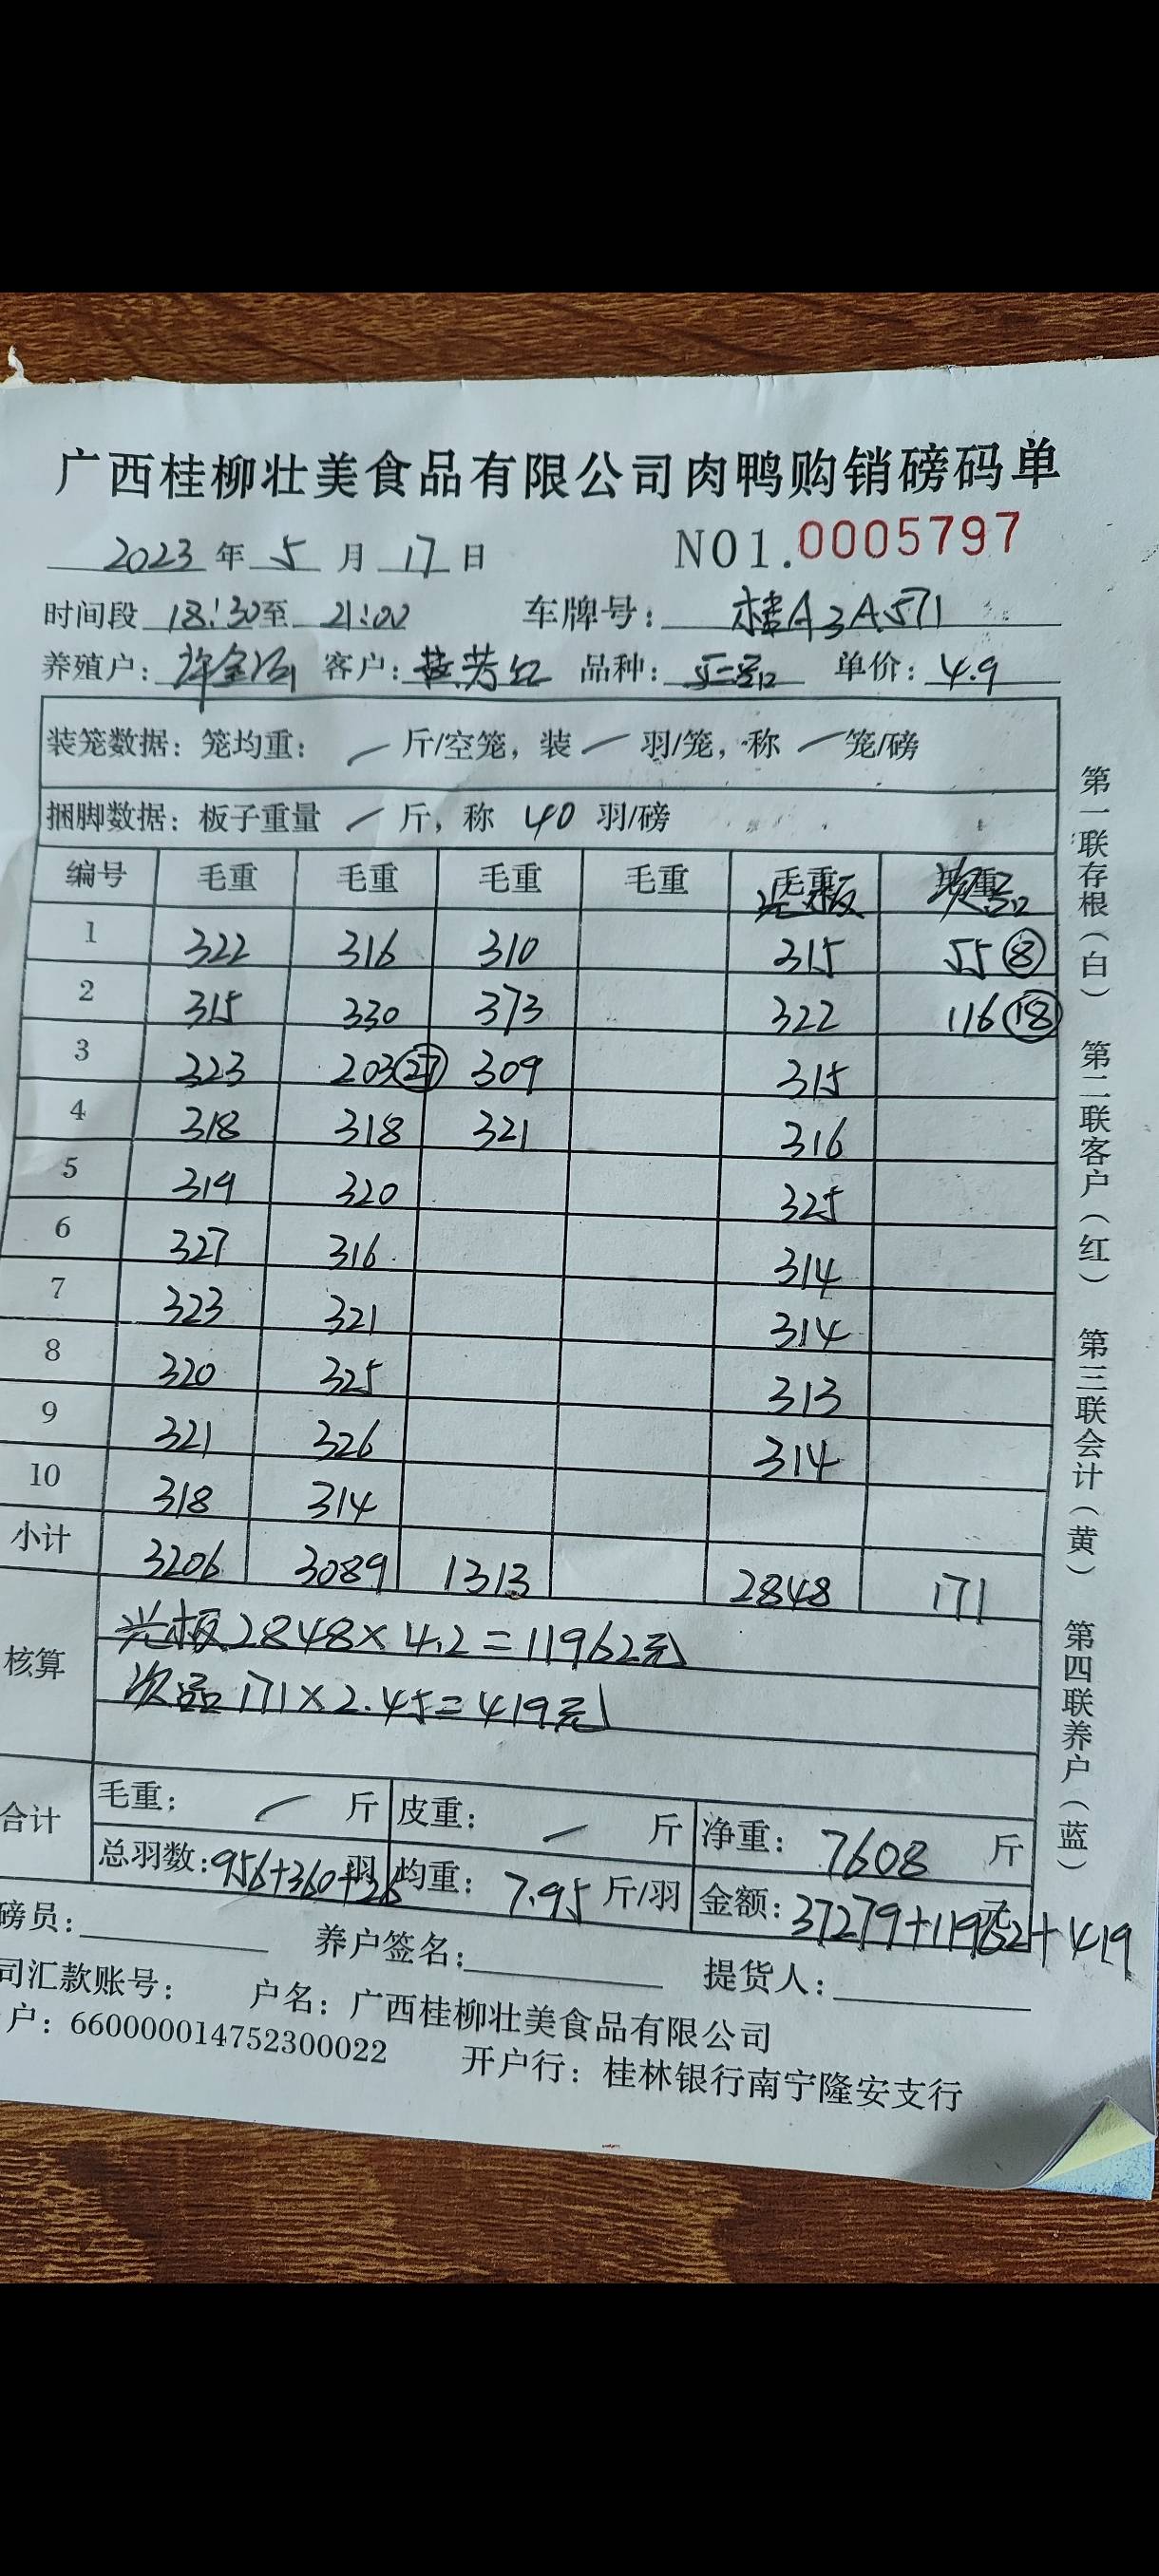 广西桂柳壮美食品有限公司肉鸭购销磅码单
2023年5月17日 NO1.0005797
时间段 18:30至 21:00 车牌号: A3A571
养殖户: 客户: 芳红 品种: 正品 单价: 4.9
装笼数据: 笼均重: — 斤/空笼, 装 — 羽/笼, 称 — 笼/磅
捆脚数据: 板子重量 — 斤, 称 40 羽/磅
编号 毛重 毛重 毛重 毛重 光板 次品
1 322 316 310 315 55 8
2 315 330 373 322 116 18
3 323 203 27 309 315
4 318 318 321 316
5 319 320 325
6 327 316 314
7 323 321 314
8 320 325 313
9 321 326 314
10 318 314
小计 3206 3089 1313 2848 171
核算
光板2848×4.2=11962元
次品171×2.45=419元
合计
毛重: — 斤 皮重: — 斤 净重: 7608 斤
总羽数:956+360+26羽 均重: 7.95 斤/羽 金额: 37279+11962+419元
磅员: 养户签名: 提货人:
司汇款账号: 户名: 广西桂柳壮美食品有限公司
户: 660000014752300022 开户行: 桂林银行南宁隆安支行
第一联存根(白) 第二联客户(红) 第三联会计(黄) 第四联养户(蓝)